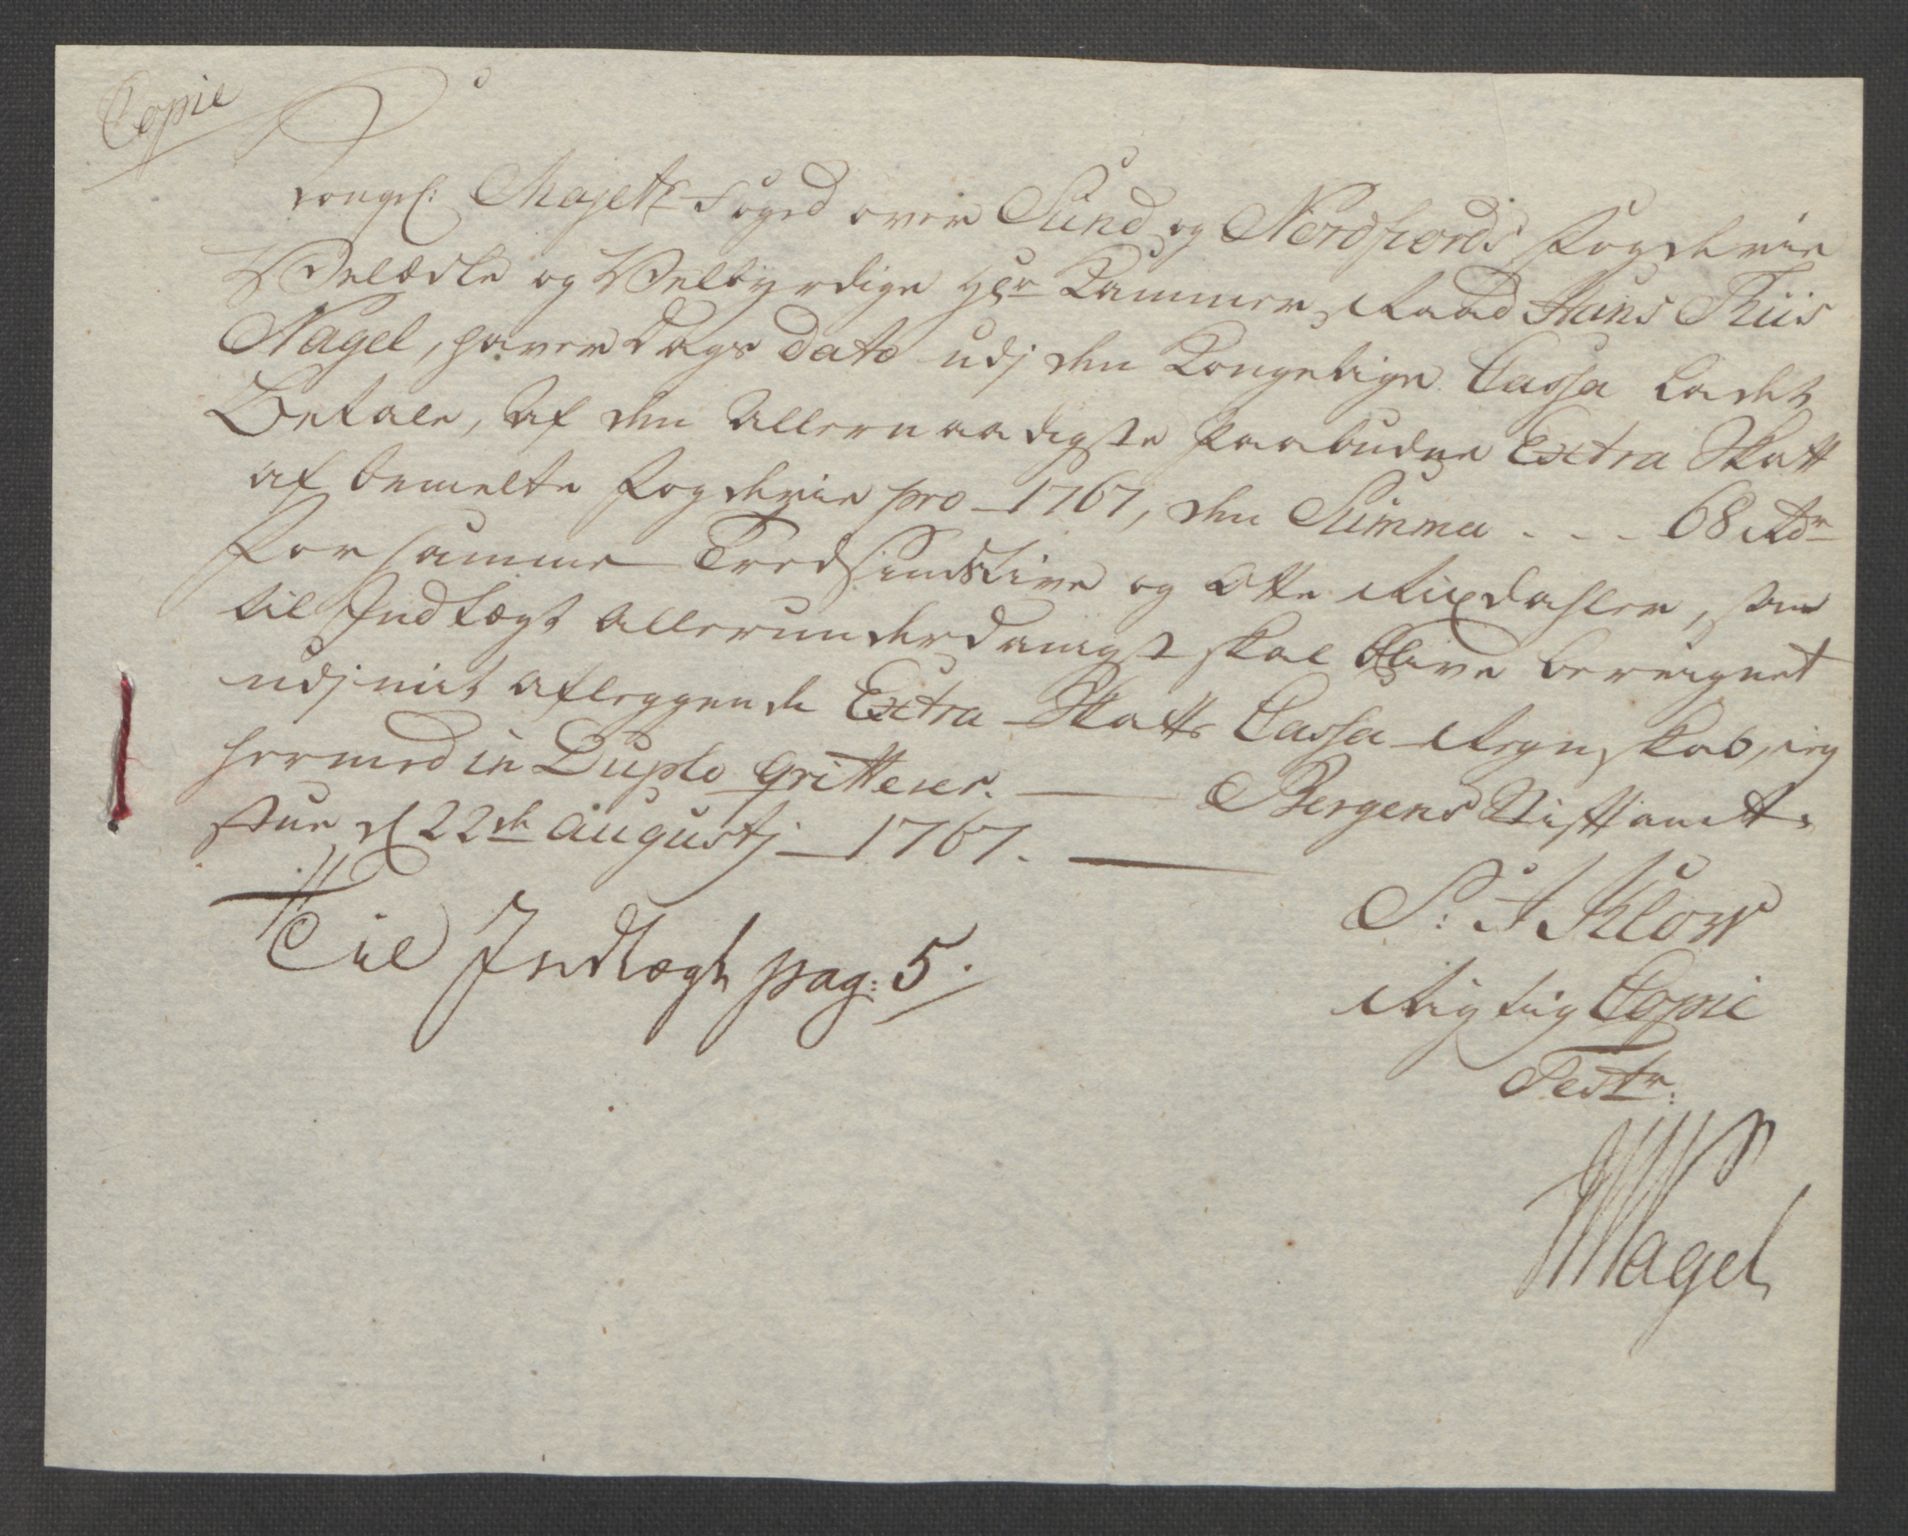 Copie
Kongel: Majetts Foged over Sund og Nordfiords Fogderie
Velædle og Velbyrdige Hr Kammer Raad Hans Thiis
Nagel, haver Dags Dato udj den Kongelige Cassa ladet
Betale, af den Allernaadigste Paabudne Extra Skatt
af bemelte Fogderie pro 1767, den Summa - - - 68 Rdr
For samme Tredsindstive og Otte Rixdahler, som
til Indtægt allerunderdanigst skal blive bereignet
udj mit aflæggende Extra Skatts Cassa Regnskab, ieg
hermed in Duplo qvitterer. — Bergens Stiftamts
stue d 22de Augustj 1767. —
Til Indtægt pag: 5.
S: A Klow
Rigtig Copie
Testr:
Nagel